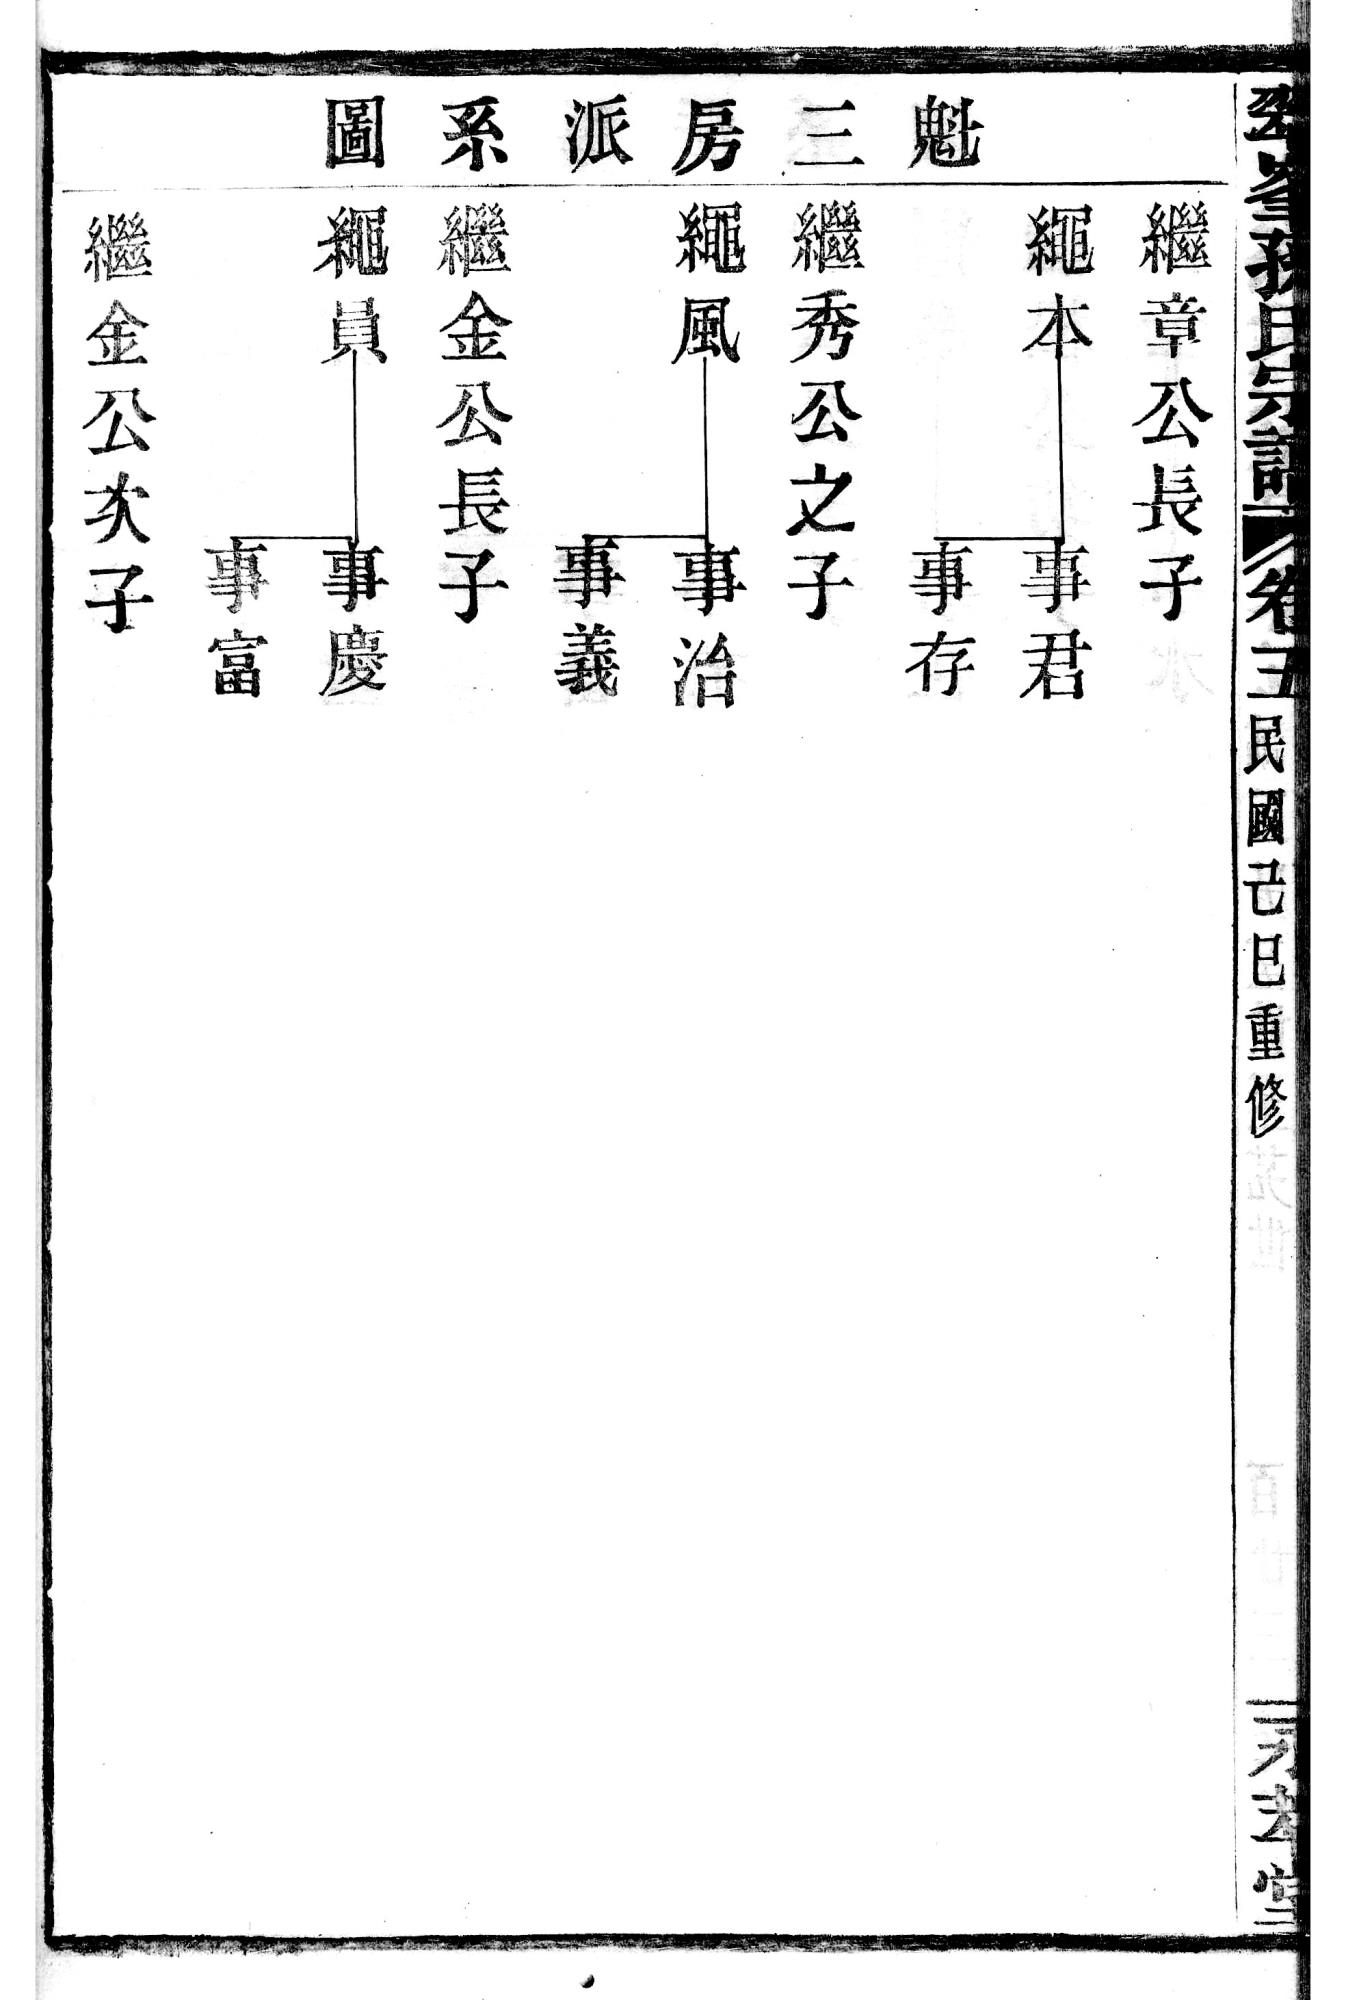 魁三房派系圖
繼章公長子
繩本
事君
事存
繼秀公之子
繩風
事治
事義
繼金公長子
繩員
事慶
事富
繼金公次子
孫氏宗譜
卷五
民國己巳重修
堂